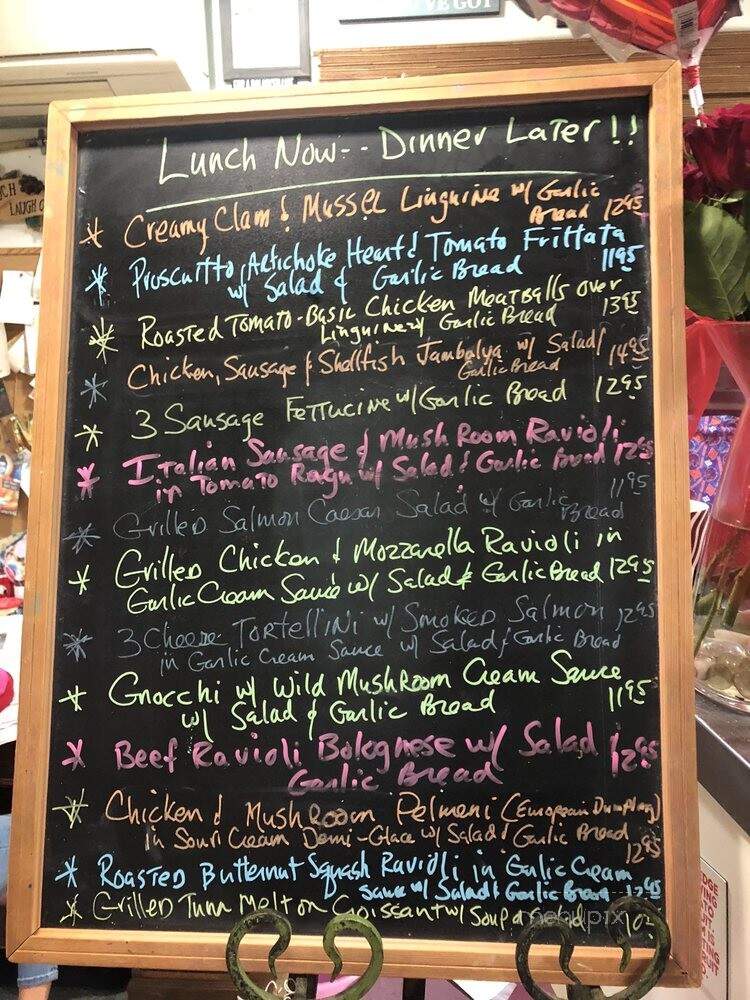 VE GOT
LAUGH O
Lunch Now-- Dinner Later!!
* Creamy Clam & Mussel Linguine w/ Garlic
Bread 12.95
* Proscuitto, Artichoke Heart & Tomato Frittata
w/ Salad & Garlic Bread 11.95
* Roasted Tomato-Basic Chicken Meatballs over
Linguine w/ Garlic Bread 13.95
* Chicken, Sausage & Shellfish Jambalya w/ Salad/
Garlic Bread 14.95
* 3 Sausage Fettucine w/ Garlic Bread 12.95
* Italian Sausage & Mushroom Ravioli
in Tomato Ragu w/ Salad & Garlic Bread 12.95
* Grilled Salmon Caesar Salad w/ Garlic 11.95
Bread
* Grilled Chicken & Mozzarella Ravioli in
Garlic Cream Sauce w/ Salad & Garlic Bread 12.95
* 3 Cheese Tortellini w/ Smoked Salmon 12.95
in Garlic Cream Sauce w/ Salad & Garlic Bread
* Gnocchi w/ Wild Mushroom Cream Sauce
w/ Salad & Garlic Bread 11.95
* Beef Ravioli Bolognese w/ Salad 12.95
Garlic Bread
* Chicken & Mushroom Pelmeni (European Dumpling)
in Sour Cream Demi-Glace w/ Salad & Garlic Bread
12.95
* Roasted Butternut Squash Ravioli in Garlic Cream
Sauce w/ Salad & Garlic Bread 12.95
* Grilled Tuna Melt on Croissant w/ Soup
menupix